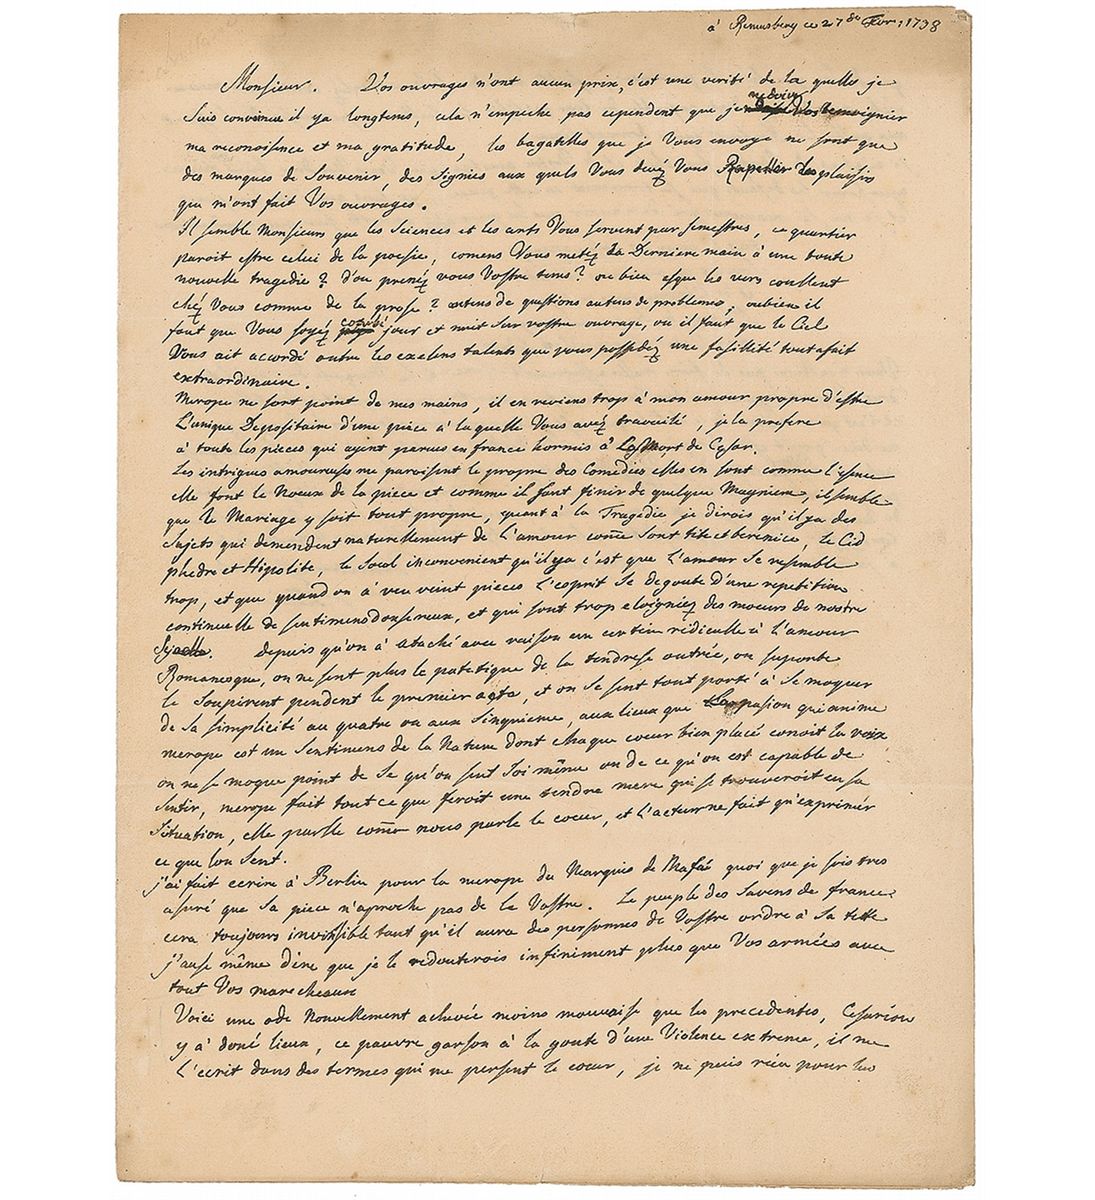 à Remusberg ce 27 de Fevr, 1738
Monsieur. Vos ouvrages n'ont aucun prix, c'est une verité de la quelles je
Suis convaincue il ya longtems, cela n'empeche pas cependent que je ne doive Vos temoignier
ma reconoisence et ma gratitude, les bagatelles que je Vous envoye ne sont que
des marques de Souvenir, des Signies aux quels Vous devéz Vous Rapeller les plaisirs
que m'ont fait Vos ouvrages.
Il semble Monsieurs que les Sciences et les arts Vous servent par semestres, ce quartier
paroit estre celui de la poesie, comens Vous metéz la Derniere main à une toute
nouvelle tragedie? d'ou prenéz vous Vostre tems? ou bien esque les vers coullent
chéz Vous comme de la prose? autens de questions autens de problemes, oubien il
faut que Vous soyéz courbé jour et nuit sur vostre ouvrage, ou il faut que le Ciel
Vous ait accordé outre les exelens talents que vous possedéz une fasillité toutafait
extraordinaire.
Merope ne sort point de mes mains, il en reviens trop à mon amour propre d'estre
L'unique Depositaire d'une piece a la quelle Vous avéz travaillé, je la prefere
à toute les pieces qui ayent parues en france hormis à La Mort de Cesar.
Les intrigues amoureuses me paroisent le propre des Comedies elles en sont comme l'esence
elle font le Noeux de la piece et comme il faut finir de quelque Magniere, il semble
que le Mariage y soit tout propre, quant à la Tragedie je dirois qu'il ya des
Sujets qui demendent naturellement de l'amour come sont tite et berenice, le Cid
phedre et Hipolite, le Seul inconvenient qu'il ya c'est que l'amour se resemble
trop, et que quand on à veu veint pieces l'esprit se degoute d'une repetition
continuelle de sentimens doucereux, et qui sont trop eloigniéz des moeurs de nostre
Siecle. depuis qu'on à ataché avec raison un certein ridiculle à l'amour
Romanesque, on ne sent plus le patetique de la tendrese outrée, on suporte
le Soupirent pendent le premier acte, et on se sent tout porté à Se moquer
de sa simplicité au quatre ou aux Sinquieme, aux lieux que La pasion qui anime
merope est un Sentimens de la Nature dont chaque coeur bien placé conoit la voix
on ne se moque point de Se qu'on sent Soi même ou de ce qu'on est capable de
Sentir, merope fait tout ce que feroit une tendre mere qui se trouveroit en sa
Situation, elle parlle come nous parle le coeur, et l'acteur ne fait qu'exprimer
ce que l'on Sent.
j'ai fait ecrire à Berlin pour la merope du Marquis de Mafei quoi que je sois tres
asuré que Sa piece n'aproche pas de la Vostre. Le peuple des Savens de france
cera toujours invinsible tant qu'il aura des personnes de Vostre ordre à Sa tette
j'ause même dire que je le redouterois infiniment plus que Vos armées avec
tout Vos marecheaux
Voici une ode Nouvellement achevée moins mauvaise que les precedentes, Cesarion
y a' doné lieux, ce pauvre garson à la goute d'une Violence extreme, il me
L'ecrit dans des termes qui me persent le coeur, je ne puis rien pour lui